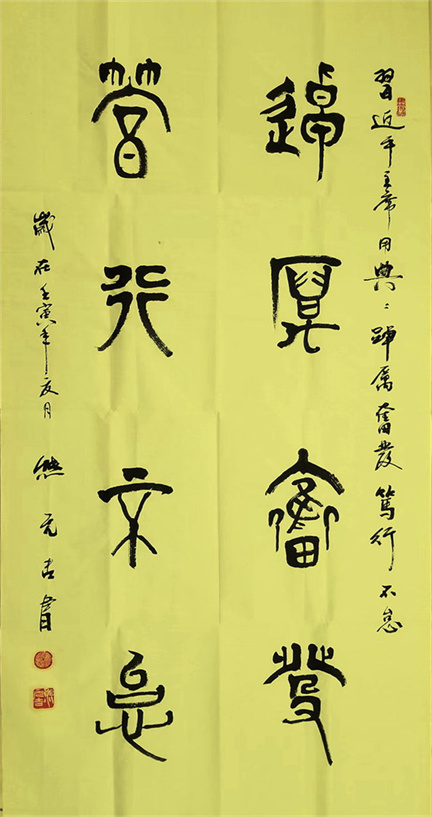 習近平主席用典：踔厲奮發 篤行不怠
踔厲奮發
篤行不怠
歲在壬寅年夏月 熊元書